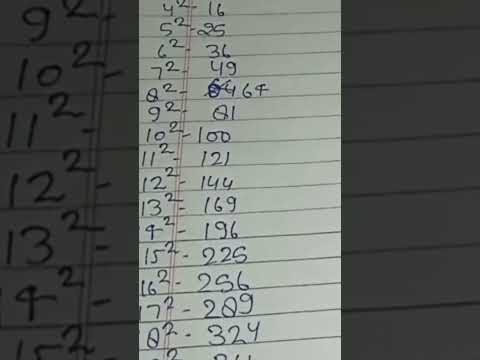 9²
10² -
11² -
12² -
13² -
14² -
15²
4²- 16
5²-25
6²- 36
7²- 49
8²- 64
9²- 81
10²-100
11²- 121
12²- 144
13²- 169
4²- 196
15²- 225
16²- 256
17²- 289
8²- 324